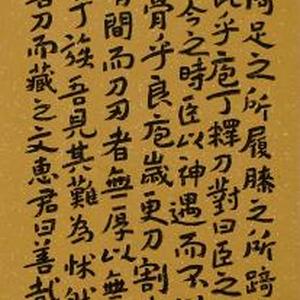 倚足之所履膝之所踦
此乎庖丁釋刀對曰臣之
今之時臣以神遇而不
骨乎良庖歲更刀割
間而刀刃者無厚以無
於族吾見其難為怵然
刀而藏之文惠君曰善哉